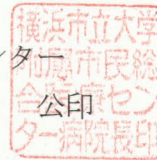 ター
公印
横浜市立大学
附属市民総
合医療セン
ター病院長印